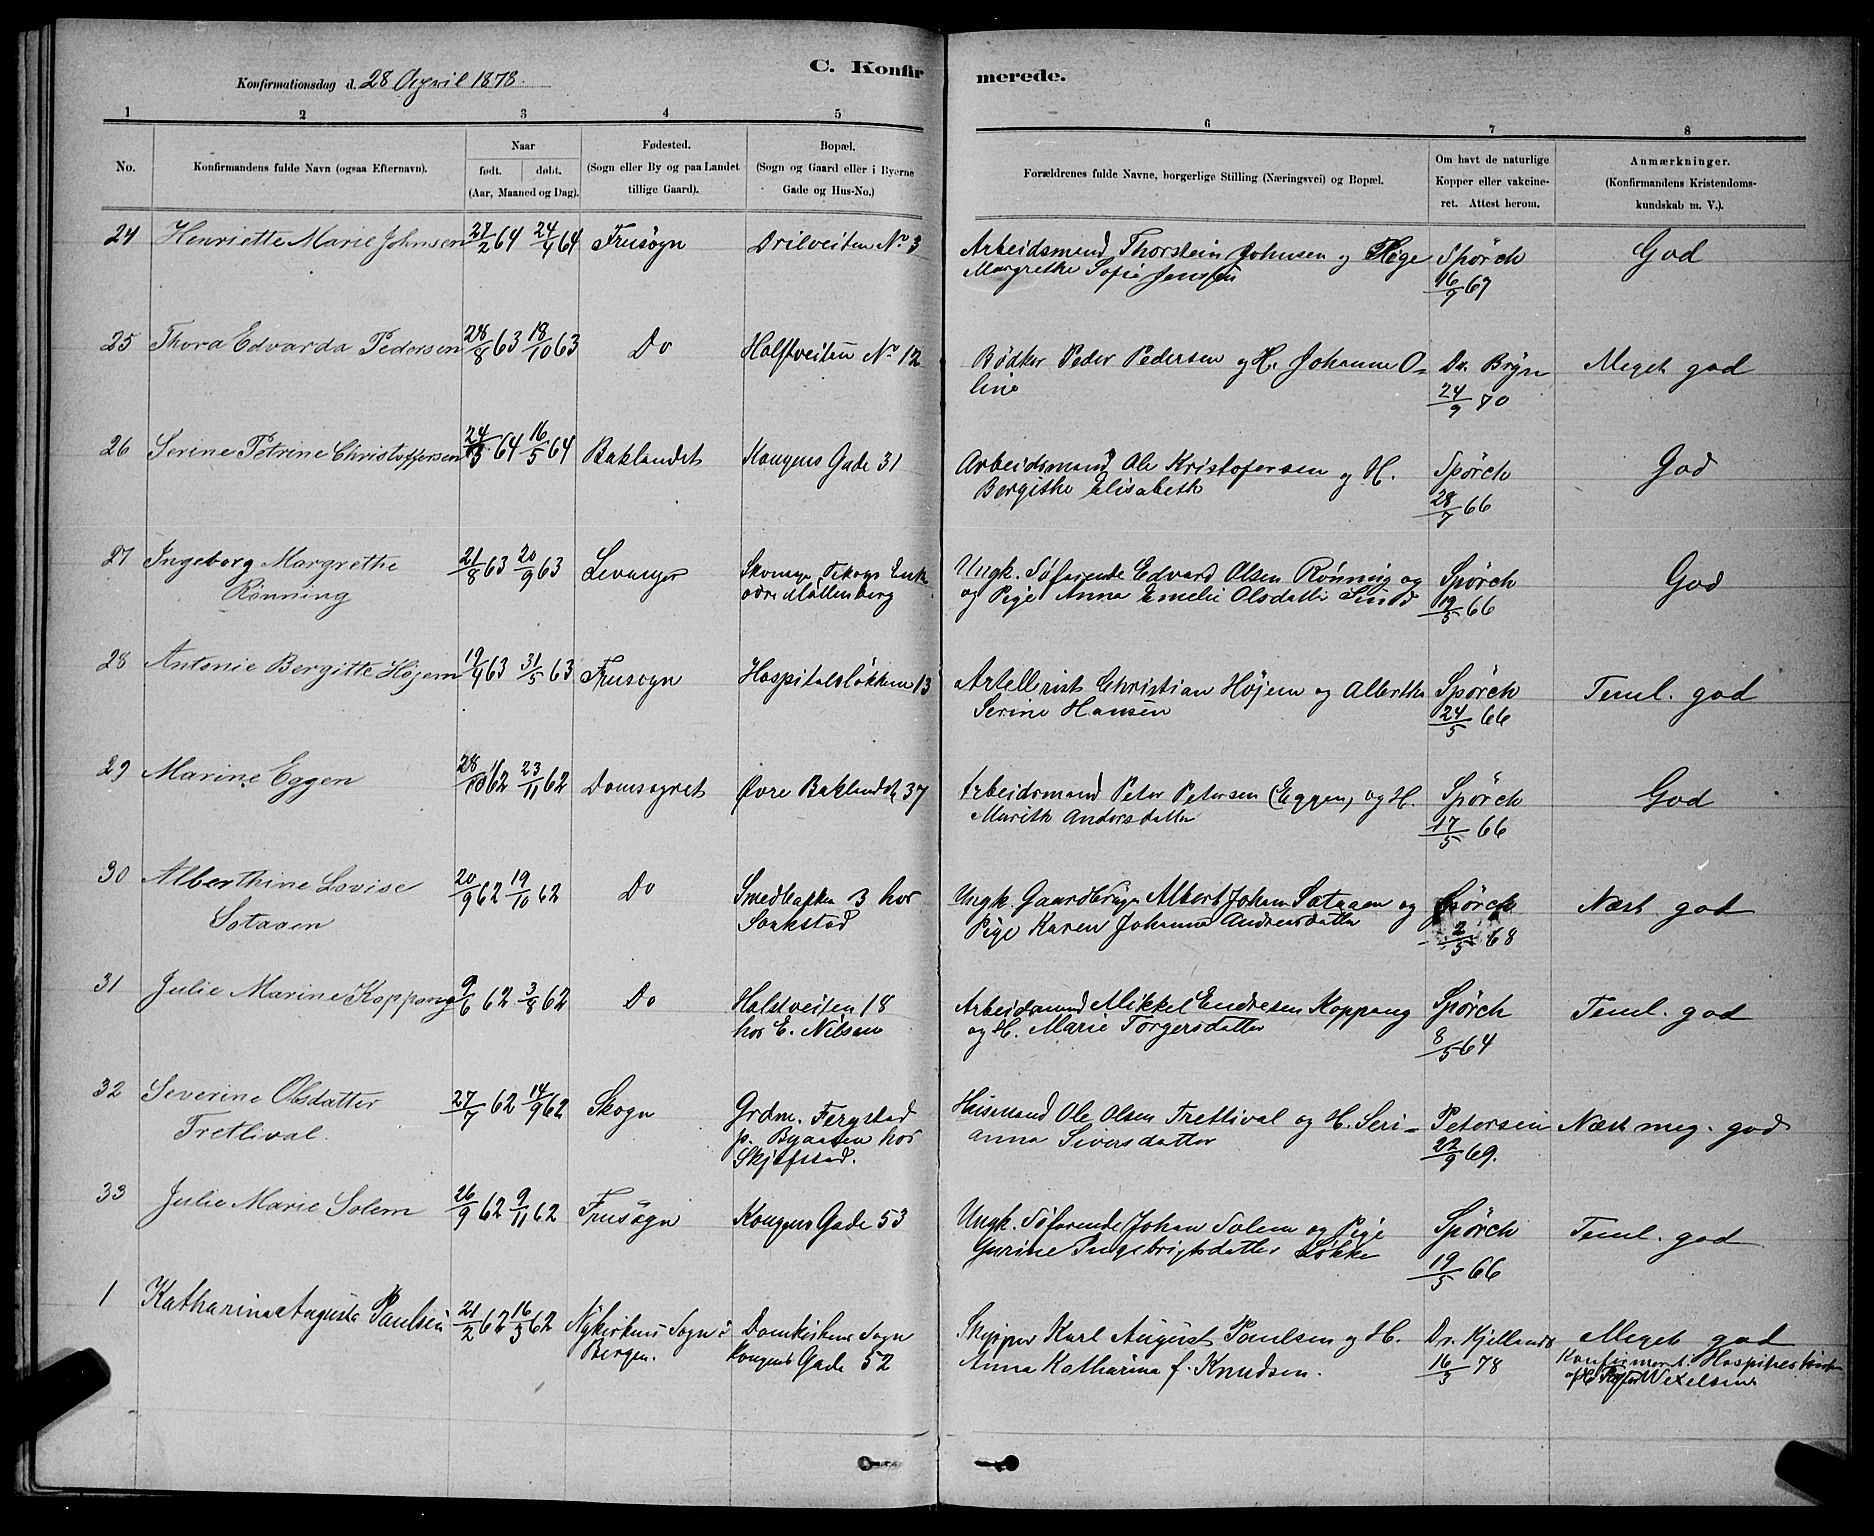 Konfirmationsdag d. 28 April 1878.
C. Konfirmerede.
1 2 3 4 5 6 7 8
No.
Konfirmandens fulde Navn (ogsaa Efternavn).
Naar
født. døbt.
(Aar, Maaned og Dag).
Fødested.
(Sogn eller By og paa Landet
tillige Gaard).
Bopæl.
(Sogn og Gaard eller i Byerne
Gade og Hus-No.)
Forældrenes fulde Navne, borgerlige Stilling (Næringsvei) og Bopæl.
Om havt de naturlige
Kopper eller vakcine-
ret. Attest herom.
Anmærkninger.
(Konfirmandens Kristendoms-
kundskab m. V.).
24 Henriette Marie Johnsen 27/2 64 24/4 64 Frusogn Drilveiten No 3 Arbeidsmand Thorstein Johnsen og Pige Spörck God
Margrethe Sofie Jensen 16/9 67
25 Thora Edvarda Pedersen 28/8 63 18/10 63 Do Holstveiten No 12 Bødker Peder Pedersen og H. Johanne O- Dr. Bryn Meget god
line 24/9 70
26 Serine Petrine Christoffersen 24/3 64 16/5 64 Baklandet Kongens Gade 31 Arbeidsmand Ole Kristofersen og H. Spörck God
Bergithe Elisabeth 28/7 66
27 Ingeborg Margrethe 21/8 63 20/9 63 Levanger Ungk. Søfarende Edvard Olsen Rønning og Spörck God
Rönning øvre Møllenberg og Pige Anna Emelie Olsdatter 19/5 66
28 Antonie Bergitte Höjem 19/4 63 31/5 63 Frusogn Hospitalsløkken 13 Artellerist Christian Höjem og Alberthe Spörck Teml. god
Serine Hansen 24/5 66
29 Marine Eggen 28/10 62 23/11 62 Domsognet Øvre Baklandet 37 Arbeidsmand Peter Petersen (Eggen) og H. Spörck God
Marith Andersdatter 17/5 66
30 Alberthine Lovise 20/9 62 19/10 62 Do Smedbakken 3 hos Ungk. Gaardbruger Albert Johan Sataaen og Spörck Næst god
Sataaen Pige Karen Johanna Andreasdatter 2/5 68
31 Julie Marine Koppang 9/6 62 3/8 62 Do Holstveiten 18 Arbeidsmand Mikkel Endresen Koppang Spörck Teml. god
hos E. Nilsen og H. Marie Torgersdatter 8/5 64
32 Severine Olsdatter 27/7 62 14/9 62 Skogn Grdm. Fergstad Husmand Ole Olsen Tretlival og H. Seri- Petersen Næst meg. god
Tretlival. p. Byaasen hos anna Siversdatter 22/9 69.
Skjefstad.
33 Julie Marie Solem 26/9 62 9/11 62 Frusogn Kongens Gade 53 Ungk. Søfarende Johan Solem og Pige Spörck Teml. god
Gurine Ingebrigtsdatter Løkke 19/5 66
1 Katharina Augusta Paulsen 21/2 62 16/3 62 Nykirkens Sogn i Domkirkens Sogn Skipper Karl August Paulsen og H. Dr. Kjelland Meget god
Bergen. Kongens Gade 52 Anna Katharina f. Knudsen. 16/3 78 Konfirmeret i Hospitalskirken
af Wexelsen